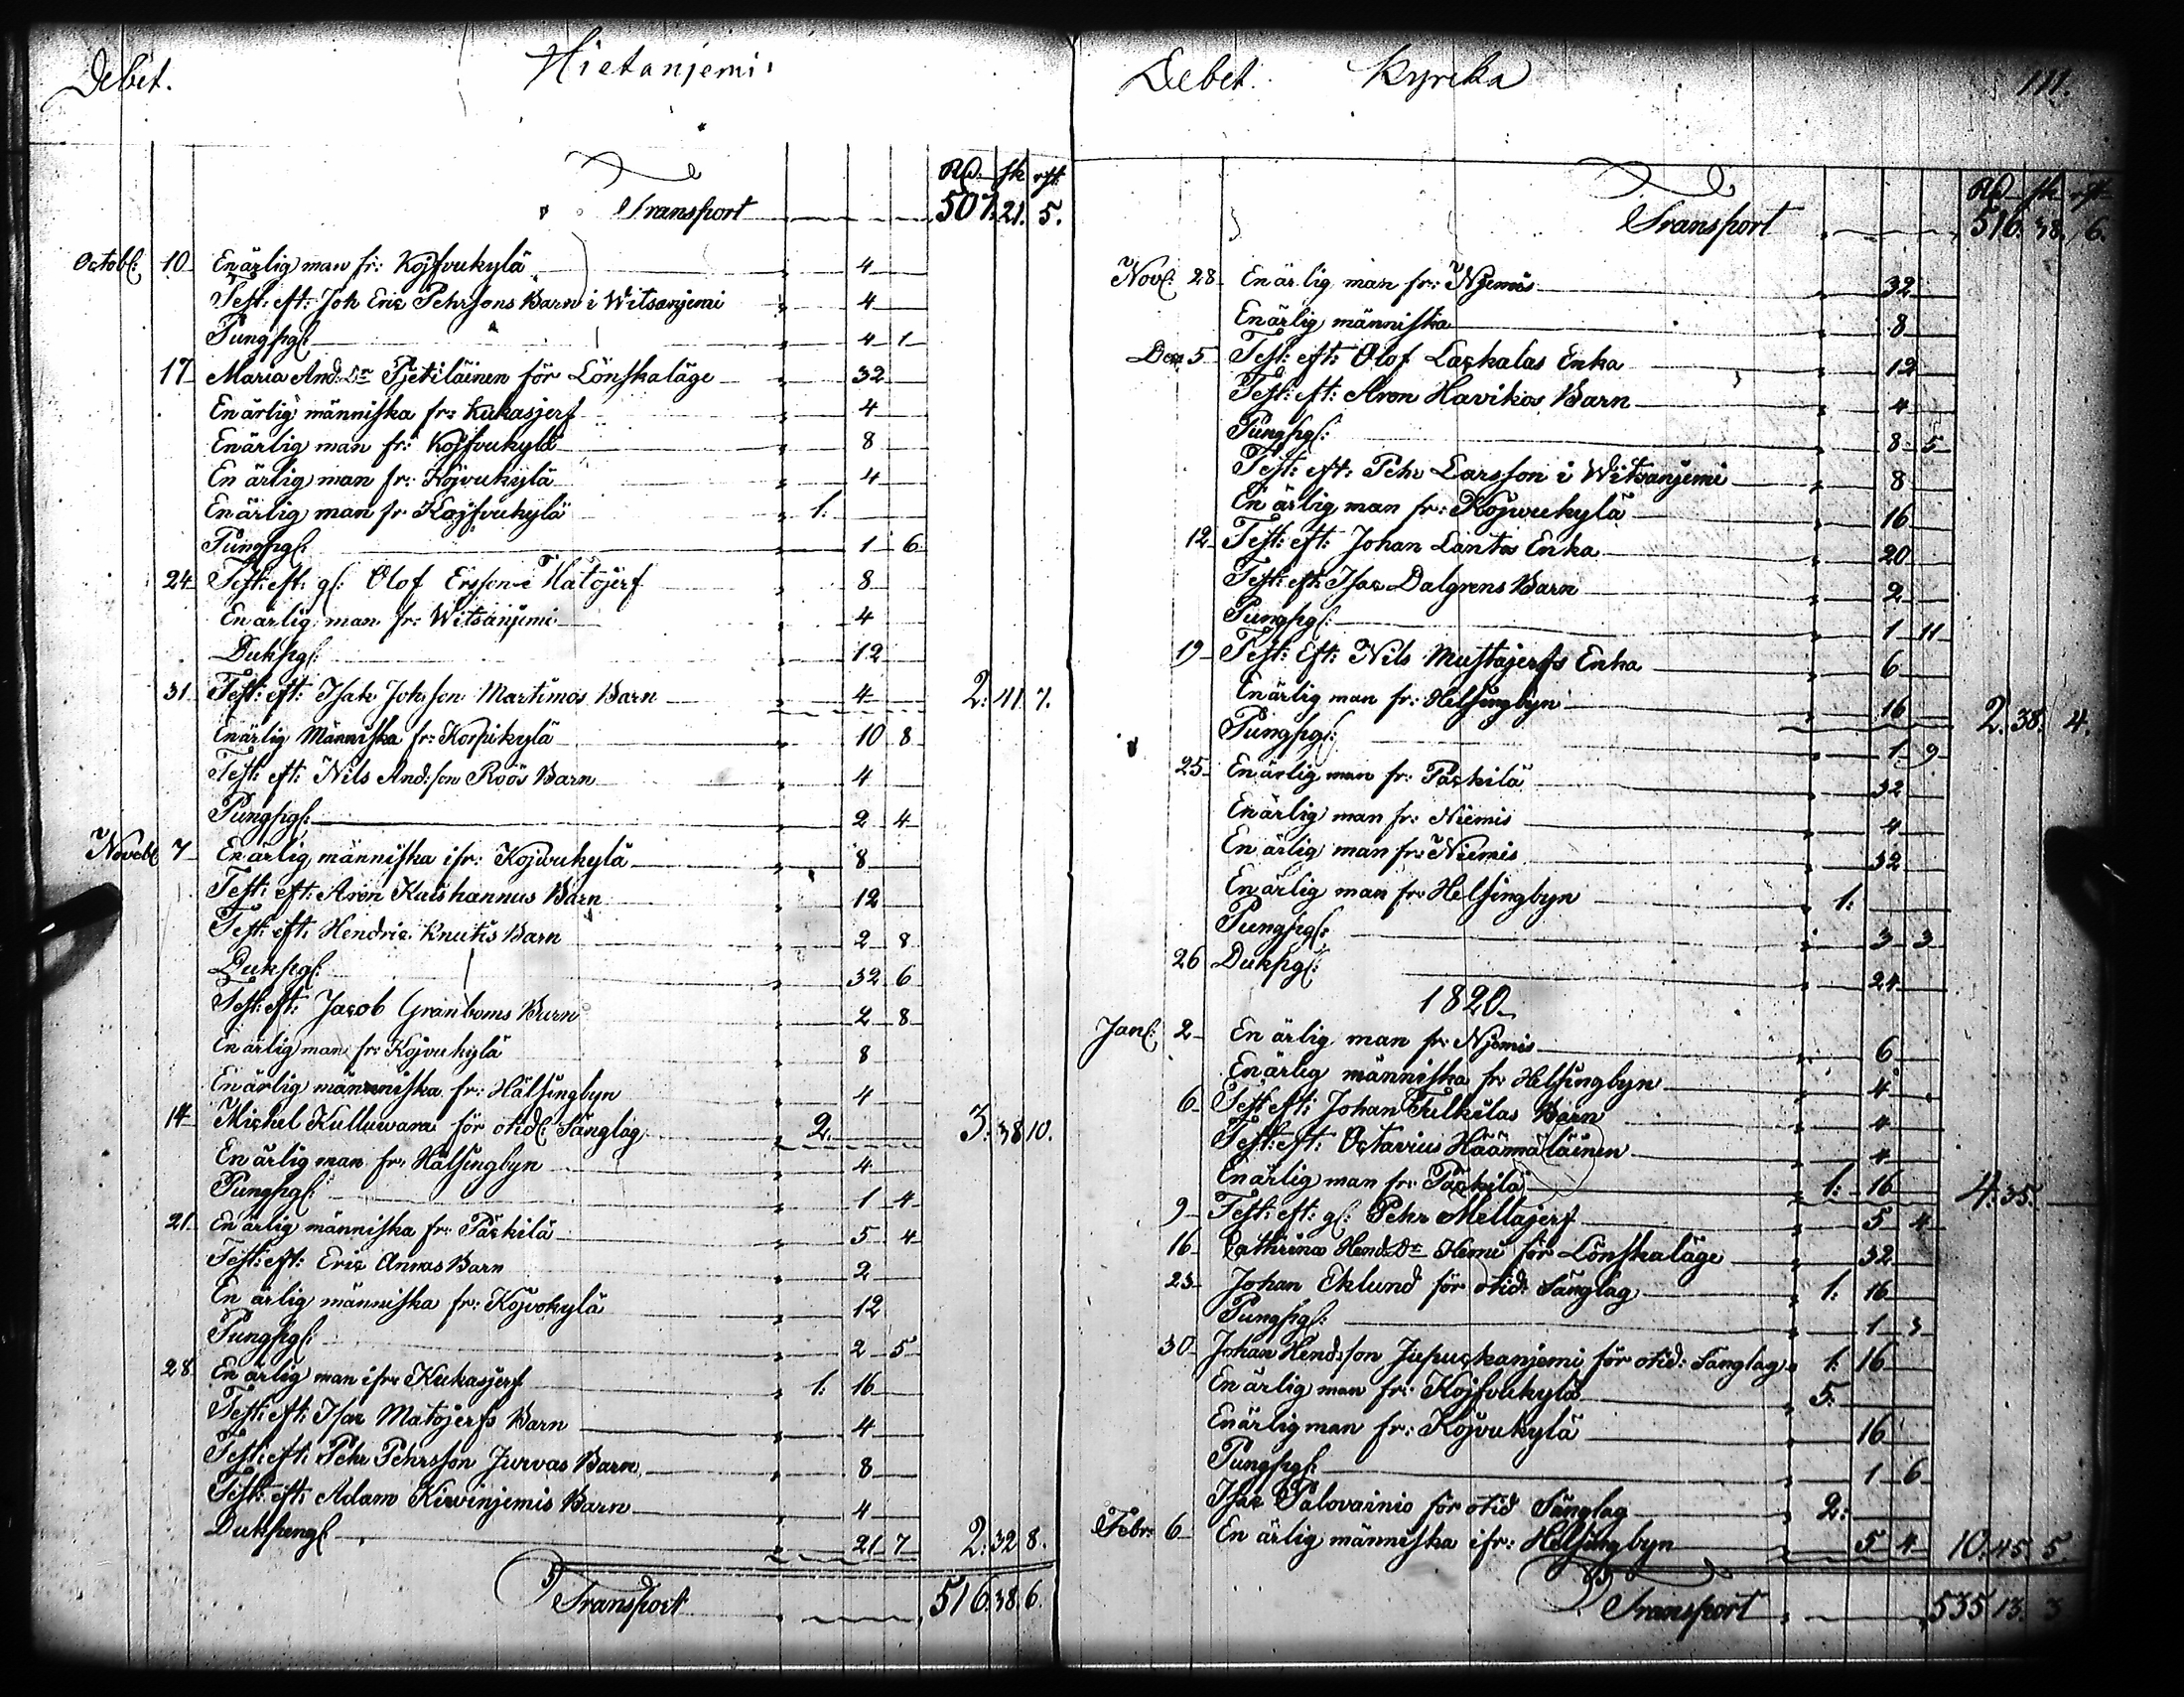 Debet. Hietanjemi
Rd. sk rst.
Transport 507. 21. 5.
Octobr: 10 En ärlig man fr: Kojfvukylä 4
Test: eft: Joh Eric Pehrsons Barn i Witsanjemi 4
Pungpg: 4 1
17 Maria And: Dr Pjetiläinen för Lönskaläge 32
En ärlig människa fr: Kukasjerf 4
En ärlig man fr: Kojfvukylä 8
En ärlig man fr: Kojvukylä 4
En ärlig man fr Kojfvukylä 1:
Pungpg: 1 6
24 Test: eft: gl: Olof Ersson i Matojerf 8
En ärlig man fr: Witsanjemi 4
Dukpg: 12
31 Test: eft: Isak Johsson Martimos Barn 4 2: 41 7.
En ärlig Människa fr: Korpikylä 10 8
Test: eft: Nils And:son Roös Barn 4
Pungpg: 2 4
Novebr 7 En ärlig människa ifr: Kojvukylä 8
Test: eft: Aron Kaishannus Barn 12
Test: eft: Hendric Knutis Barn 2 8
Dukpg: 32 6
Test: eft: Jacob Granboms Barn 2 8
En ärlig man fr: Kojvukylä 8
En ärlig männniska fr: Hälsingbyn 4
14 Michel Kulluwara för otid: Sänglag 2. 3: 38 10.
En ärlig man fr: Hälsingbyn 4
Pungpg: 1 4
21 En ärlig människa fr: Päckilä 5 4
Test: eft: Eric Annas Barn 2
En ärlig människa fr: Kojvokylä 12
Pungpg: 2 5
28 En ärlig man ifr: Kukasjerf 1: 16
Test: eft: Isac Matojerfs Barn 4
Test: eft: Pehr Pehrsson Jurvas Barn 8
Test: eft: Adam Kirvinjemis Barn 4
Dukpeng: 21 7 2: 32 8.
Transport 516. 38. 6.
Debet. Kyrcka 111.
Rd sk rst
Transport 516. 38. 6.
Novr: 28 En ärlig man fr: Njemis 32
En ärlig människa 8
Dec 5 Test: eft: Olof Lackalas Enka 12
Test: eft: Aron Havikos Barn 4
Pungpg: 8 5
Test: eft: Pehr Larsson i Witsanjemi 8
En ärlig man fr: Kojvukylä 16
12 Test: eft: Johan Lantos Enka 20
Test: eft: Isac Dalgrens Barn 2
Pungpg: 1 11
19 Test: Eft: Nils Mustajerfs Enka 6
En ärlig man fr: Helsingbyn 16 2. 38. 4.
Pungpg: 1. 9
25 En ärlig man fr: Päckilä 32
En ärlig man fr: Niemis 4
En ärlig man fr: Niemis 32
En ärlig man fr: Helsingbyn 1:
Pungpg: 3 3
26 Dukpg: 24
1820
Janr: 2 En ärlig man fr: Njemis 6
En ärlig människa fr Helsingbyn 4
6 Test: eft: Johan Fulkilas Barn 4
Test: eft: Octavius Häämäläinen 4
En ärlig man fr: Päckilä 1: 16 4: 35.
9 Test: eft: gl: Pehr Mellajerf 5 4
16 Cathrina Hend: Dr Hemi för Lönskaläge 32
23 Johan Eklund för otid: Sänglag 1: 16
Pungpg: 1 3
30 Johan Hend:son Jupuckanjemi för otid: Sänglag 1: 16
En ärlig man fr: Kojfvukylä 5:
En ärlig man fr: Kojvukylä 16
Pungpg: 1 6
Isac Palovainio för otid Sänglag 2:
Febr: 6 En ärlig människa ifr: Helsingbyn 5 4 10. 45 5.
Transport 535 13. 3